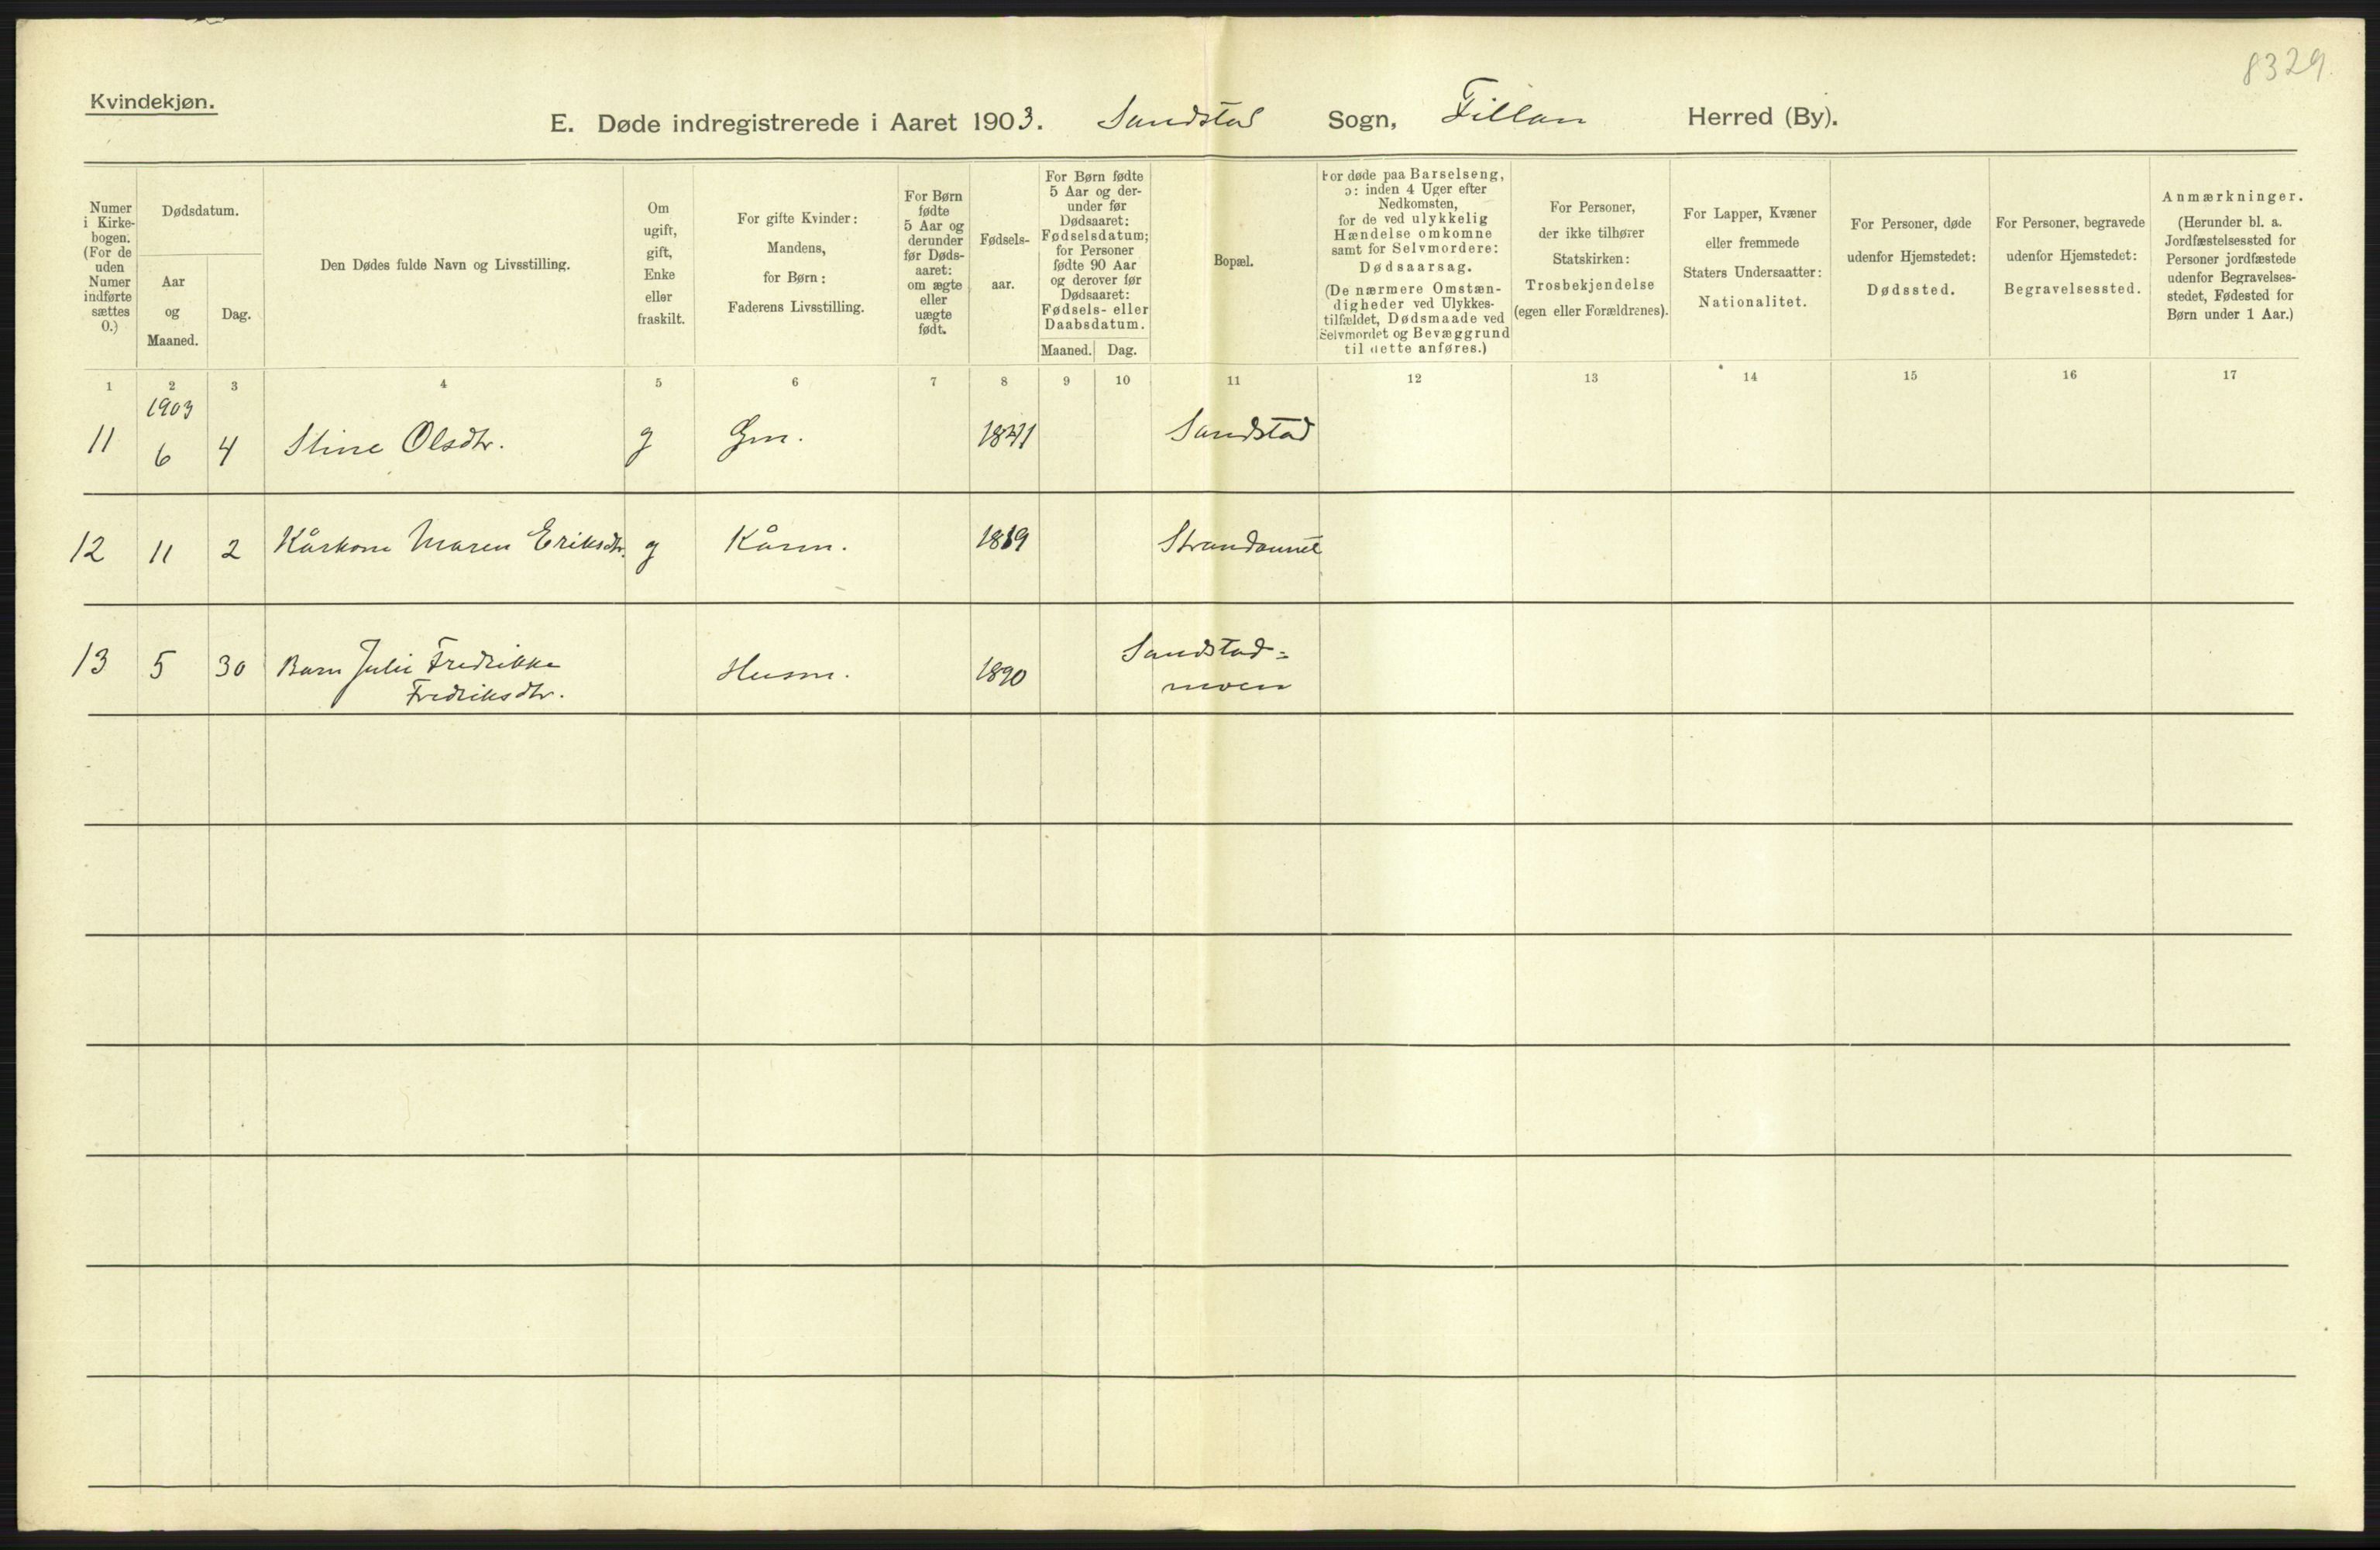 8329.
Kvindekjøn.
E. Døde indregistrerede i Aaret 1903. Sandstad Sogn, Fillan Herred (By).
Numer i Kirkebogen. (For de uden Numer indførte sættes 0.)
Dødsdatum.
Aar og Maaned.
Dag.
Den Dødes fulde Navn og Livsstilling.
Om ugift, gift, Enke eller fraskilt.
For gifte Kvinder: Mandens, for Børn: Faderens Livsstilling.
For Børn fødte 5 Aar og derunder før Dødsaaret: om ægte eller uægte født.
Fødselsaar.
For Børn fødte 5 Aar og derunder før Dødsaaret: Fødselsdatum; for Personer fødte 90 Aar og derover før Dødsaaret: Fødsels- eller Daabsdatum.
Maaned. Dag.
Bopæl.
For døde paa Barselseng, ɔ: inden 4 Uger efter Nedkomsten, for de ved ulykkelig Hændelse omkomne samt for Selvmordere: Dødsaarsag. (De nærmere Omstændigheder ved Ulykkestilfældet, Dødsmaade ved Selvmordet og Bevæggrund til dette anføres.)
For Personer, der ikke tilhører Statskirken: Trosbekjendelse (egen eller Forældrenes).
For Lapper, Kvæner eller fremmede Staters Undersaatter: Nationalitet.
For Personer, døde udenfor Hjemstedet: Dødssted.
For Personer, begravede udenfor Hjemstedet: Begravelsessted.
Anmærkninger. (Herunder bl. a. Jordfæstelsessted for Personer jordfæstede udenfor Begravelsesstedet, Fødested for Børn under 1 Aar.)
1 2 3 4 5 6 7 8 9 10 11 12 13 14 15 16 17
1903
11 6 4 Stine Olsdtr. g Gm. Sandstad
12 11 2 Kårkone Maren Eriksdtr. g Kårm. 1819
13 5 30 Barn Julie Fredrikke Husm. 1890 Sandstad=
Fredriksdtr. moen